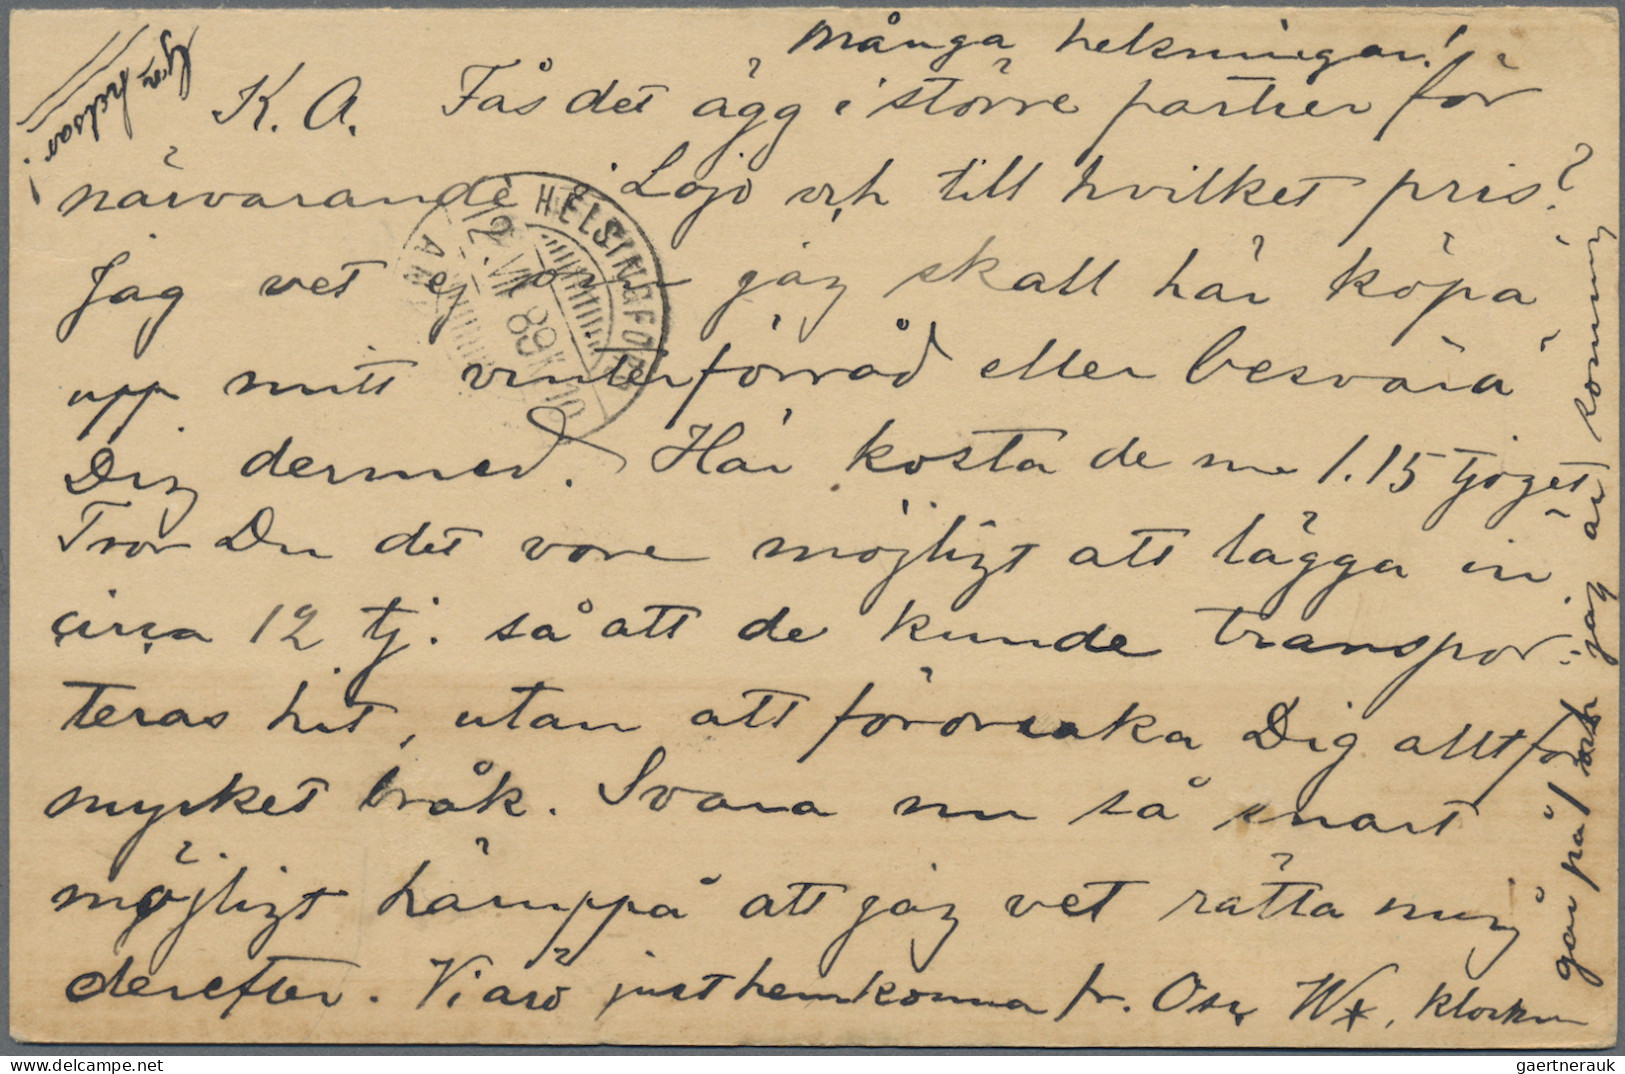 många helsningar!
K. A. Fås det ägg i större partier för
närvarande i Lojo och till hvilket pris?
Jag vet ej om jag skall här köpa
upp mitt vinterförråd eller besvära
Dig dermed. Här kosta de nu 1.15 tjoget
Tror Du det vore möjligt att lägga in
circa 12 tj. så att de kunde transpor-
teras hit, utan att förorsaka Dig alltför
mycket bråk. Svara nu så snart
möjligt härppå att jag vet rätta mig
derefter. Vi äro just hemkomna fr. Osc. Wk, klockan
går på 1 och jag är sömnig
helsar!
HELSINGFORS
12 VII 89
gaertnerauk